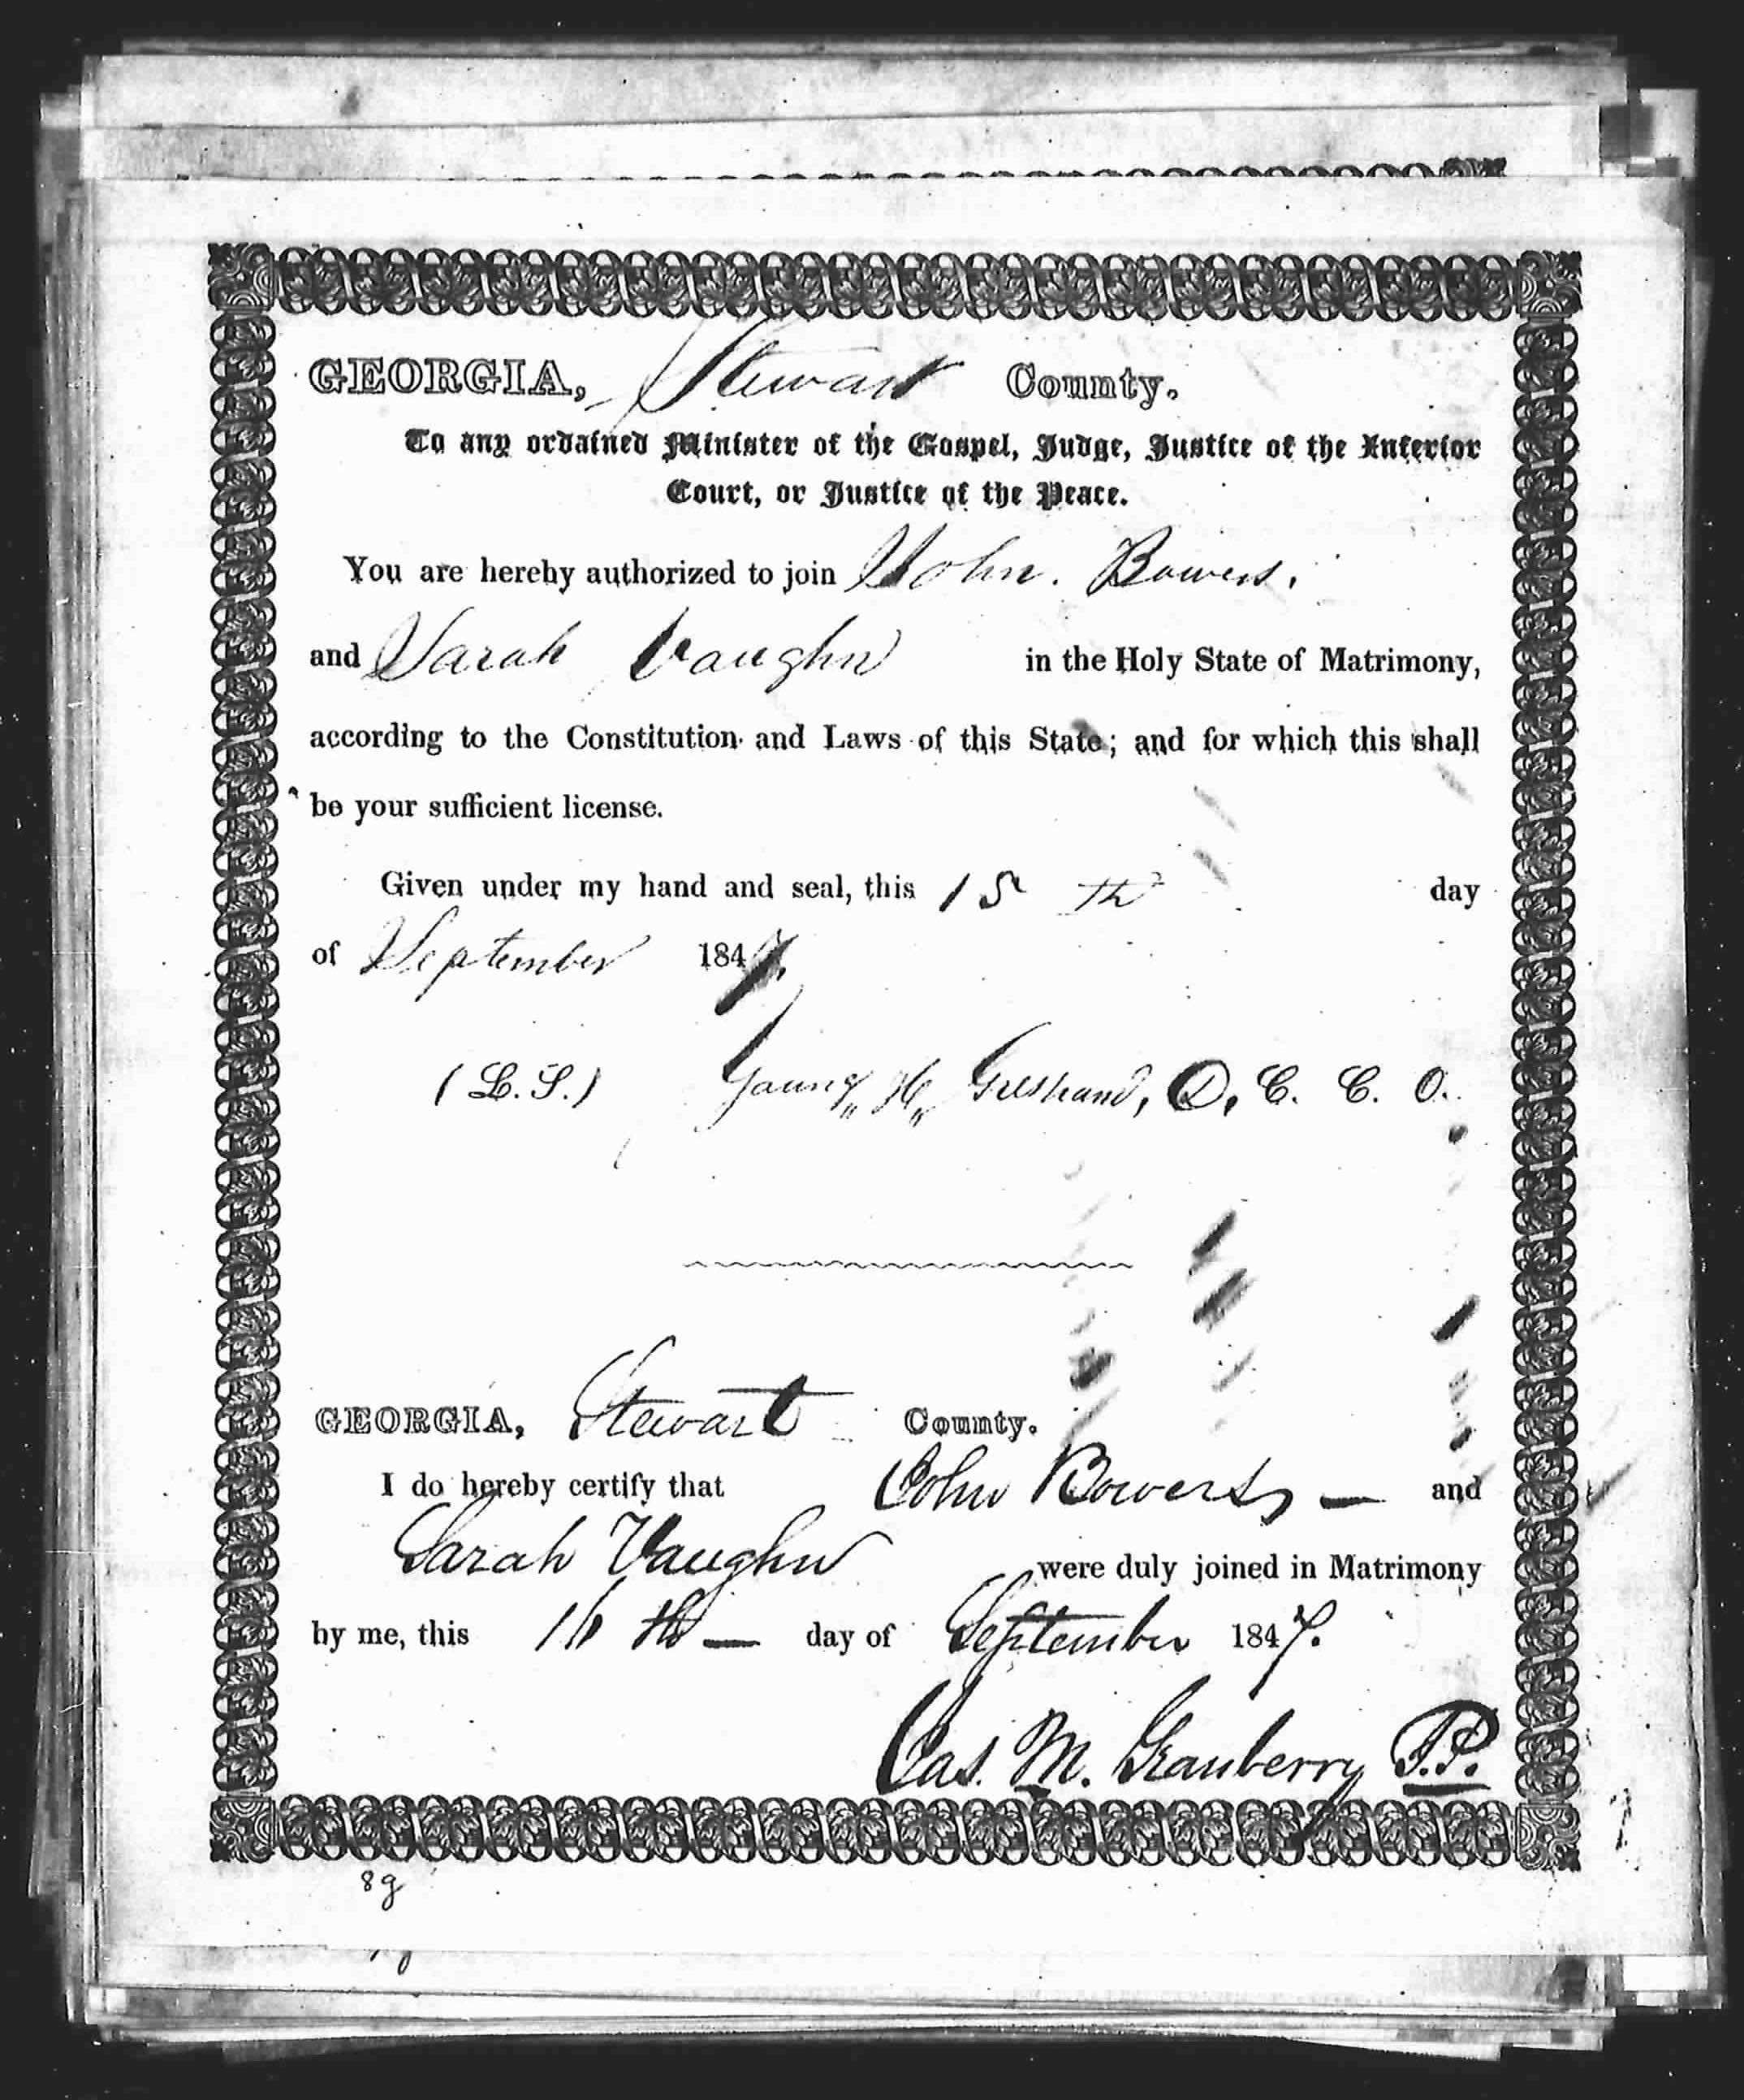 GEORGIA, Stewart County.
To any ordained Minister of the Gospel, Judge, Justice of the Inferior
Court, or Justice of the Peace.
You are hereby authorized to join John. Bowers.
and Sarah Vaughn in the Holy State of Matrimony,
according to the Constitution and Laws of this State; and for which this shall
be your sufficient license.
Given under my hand and seal, this 15 th day
of September 1847.
(L.S.) Young H. D. C. C. O.
GEORGIA, Stewart County.
I do hereby certify that John Bowers — and
Sarah Vaughn were duly joined in Matrimony
by me, this 16 th — day of September 1847.
Jas. M. Granberry J.P.
89